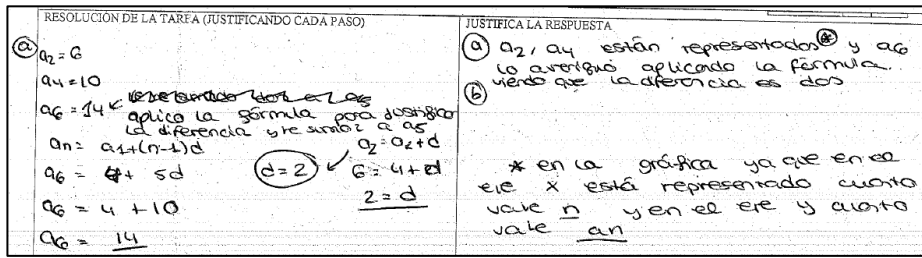 RESOLUCIÓN DE LA TAREA (JUSTIFICANDO CADA PASO)
a
a2 = 6
a4 = 10
a6 = 14 ← aplico la fórmula para justificar
la diferencia y le sumo 2 a a5
an = a1+(n-1)d
a2 = a1+d
a6 = 4+ 5d
d=2
6 = 4+d
a6 = 4 +10
2 = d
a6 = 14
JUSTIFICA LA RESPUESTA
a a2, a4 están representados* y a6
lo averiguo aplicando la fórmula.
viendo que la diferencia es dos
b
* en la gráfica ya que en el
eje x está representado cuanto
vale n y en el eje y cuanto
vale an